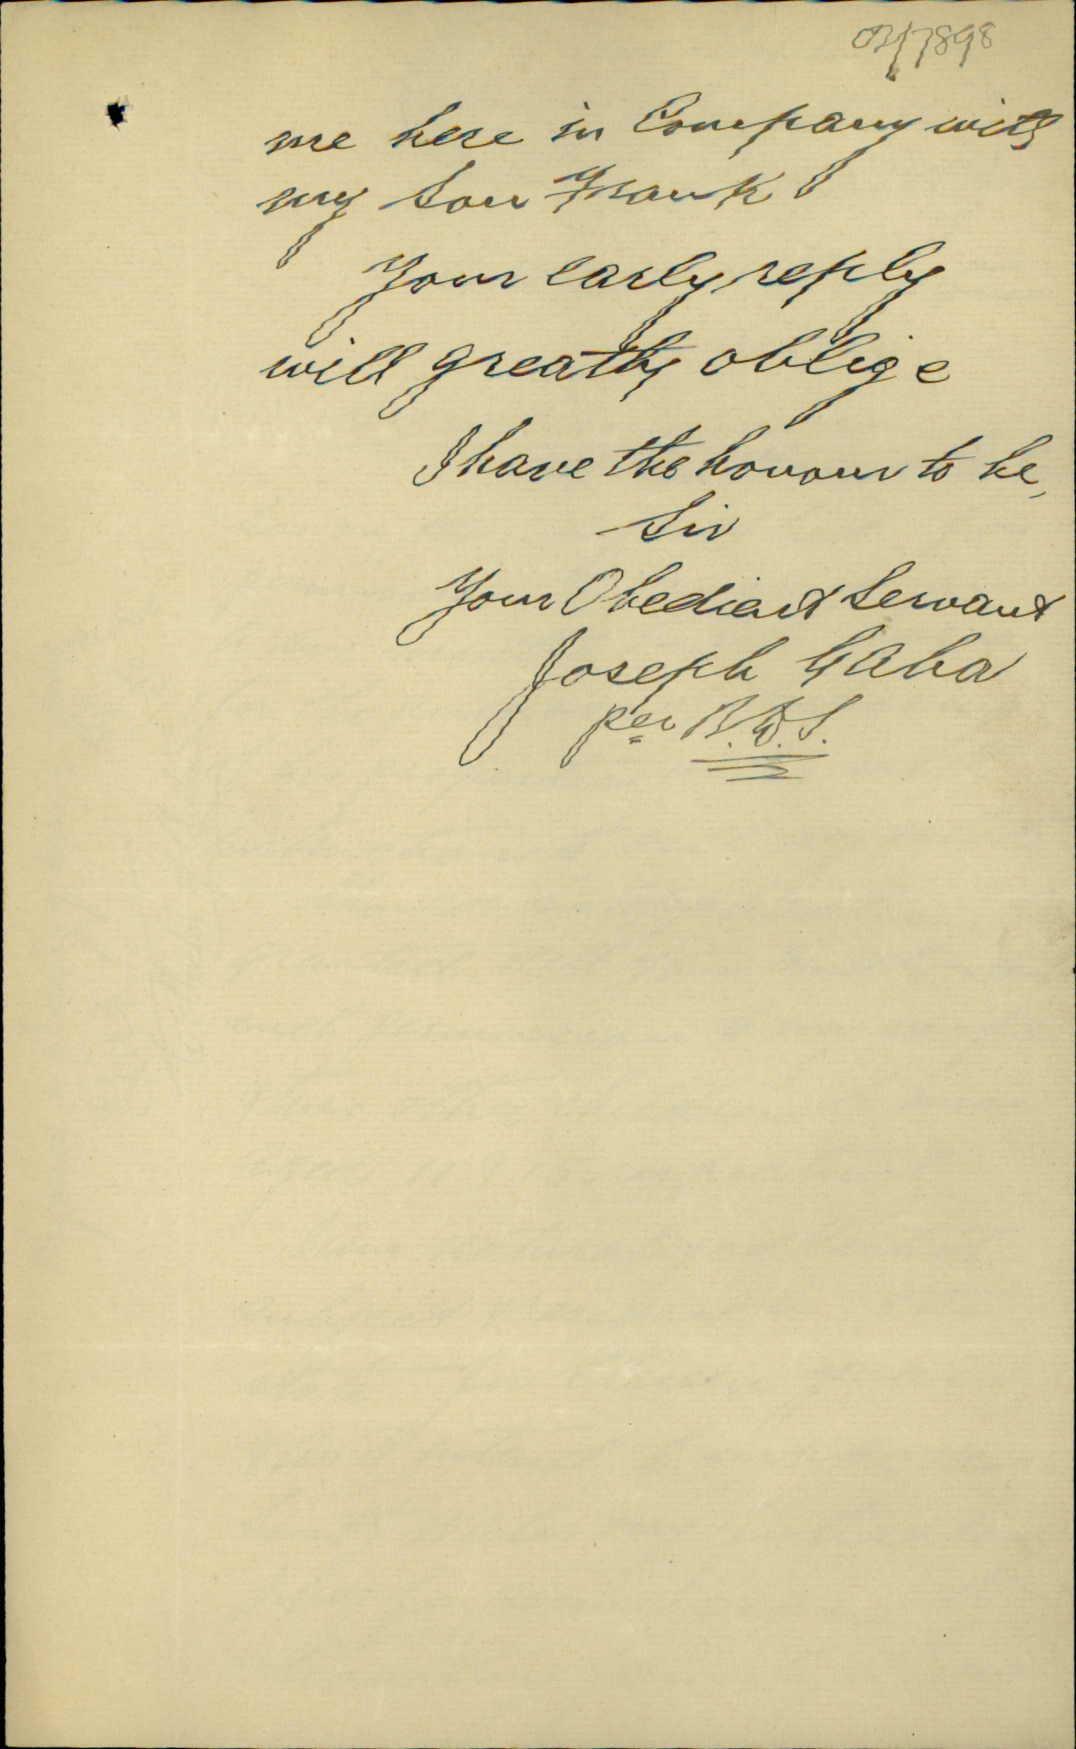 03/7898
me here in Company with
my Son Frank
Your early reply
will greatly oblige
I have the honour to be,
Sir
Your Obedient Servant
Joseph Gaba
per